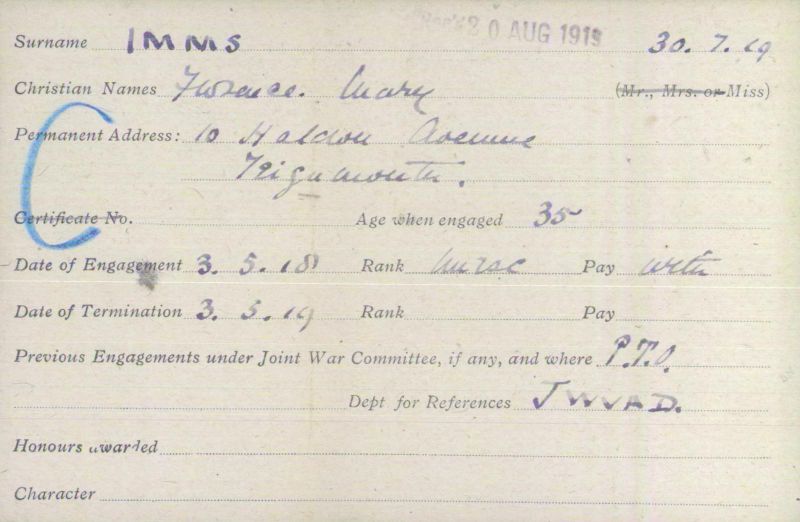 Rec'd 20 AUG 1919
Surname IMMS 30.7.19
Christian Names Florence. Mary (Mr., Mrs. or Miss)
Permanent Address: 10 Haldon Avenue
Teignmouth.
C
Certificate No. Age when engaged 35
Date of Engagement 3.5.18 Rank Nurse Pay with
Date of Termination 3.5.19 Rank Pay
Previous Engagements under Joint War Committee, if any, and where P.T.O.
Dept for References JWVAD.
Honours awarded
Character